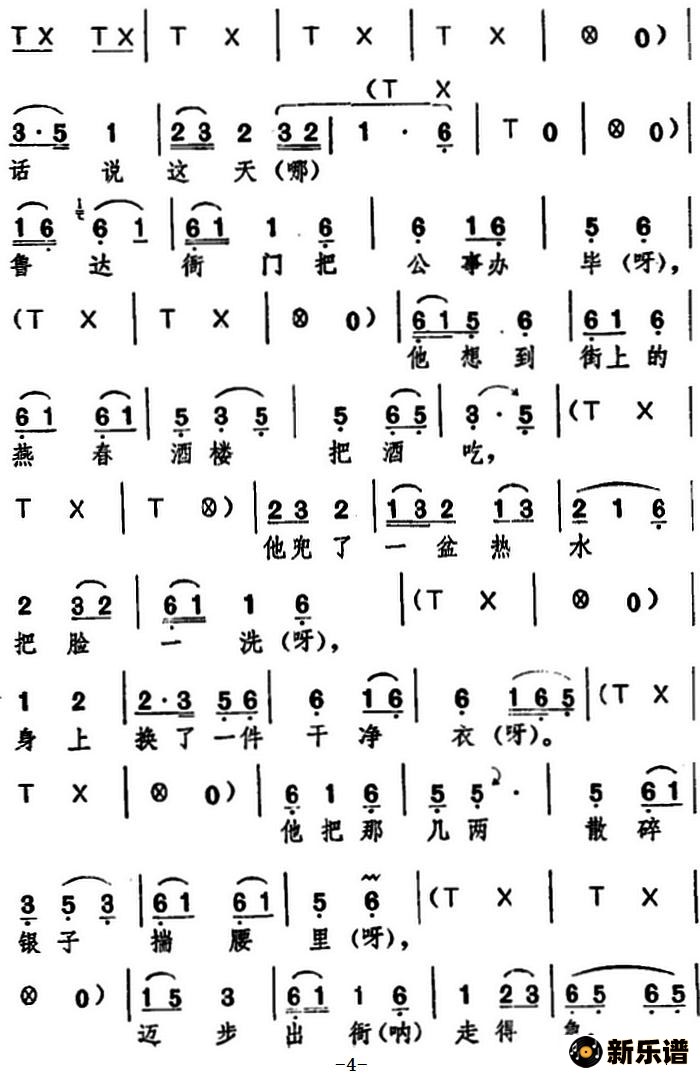 T X T X | T X | T X | T X | ⊗ 0) |
(T X
3·5 1 | 23 2 32 | 1 · 6 | T 0 | ⊗ 0) |
话 说 这 天(哪)
16 6 1 | 61 1 6 | 6 16 | 5 6 |
鲁 达 衙 门 把 公 事 办 毕(呀),
(T X | T X | ⊗ 0) | 615 6 | 61 6 |
他 想 到 街上的
61 61 | 5 3 5 | 5 65 | 3·5 | (T X |
燕 春 酒 楼 把 酒 吃,
T X | T ⊗) | 23 2 | 132 13 | 2 1 6 |
他兜了 一 盆 热 水
2 32 | 61 1 6 | (T X | ⊗ 0) |
把 脸 一 洗(呀),
1 2 | 2·3 56 | 6 16 | 6 165 | (T X |
身 上 换了一件 干 净 衣(呀)。
T X | ⊗ 0) | 6 1 6 | 5 5 · | 5 61 |
他 把 那 几 两 散 碎
3 5 3 | 61 61 | 5 6 | (T X | T X |
银 子 揣 腰 里(呀),
⊗ 0) | 15 3 | 61 1 6 | 1 23 | 65 65 |
迈 步 出 衙(呐) 走 得
新乐谱
-4-